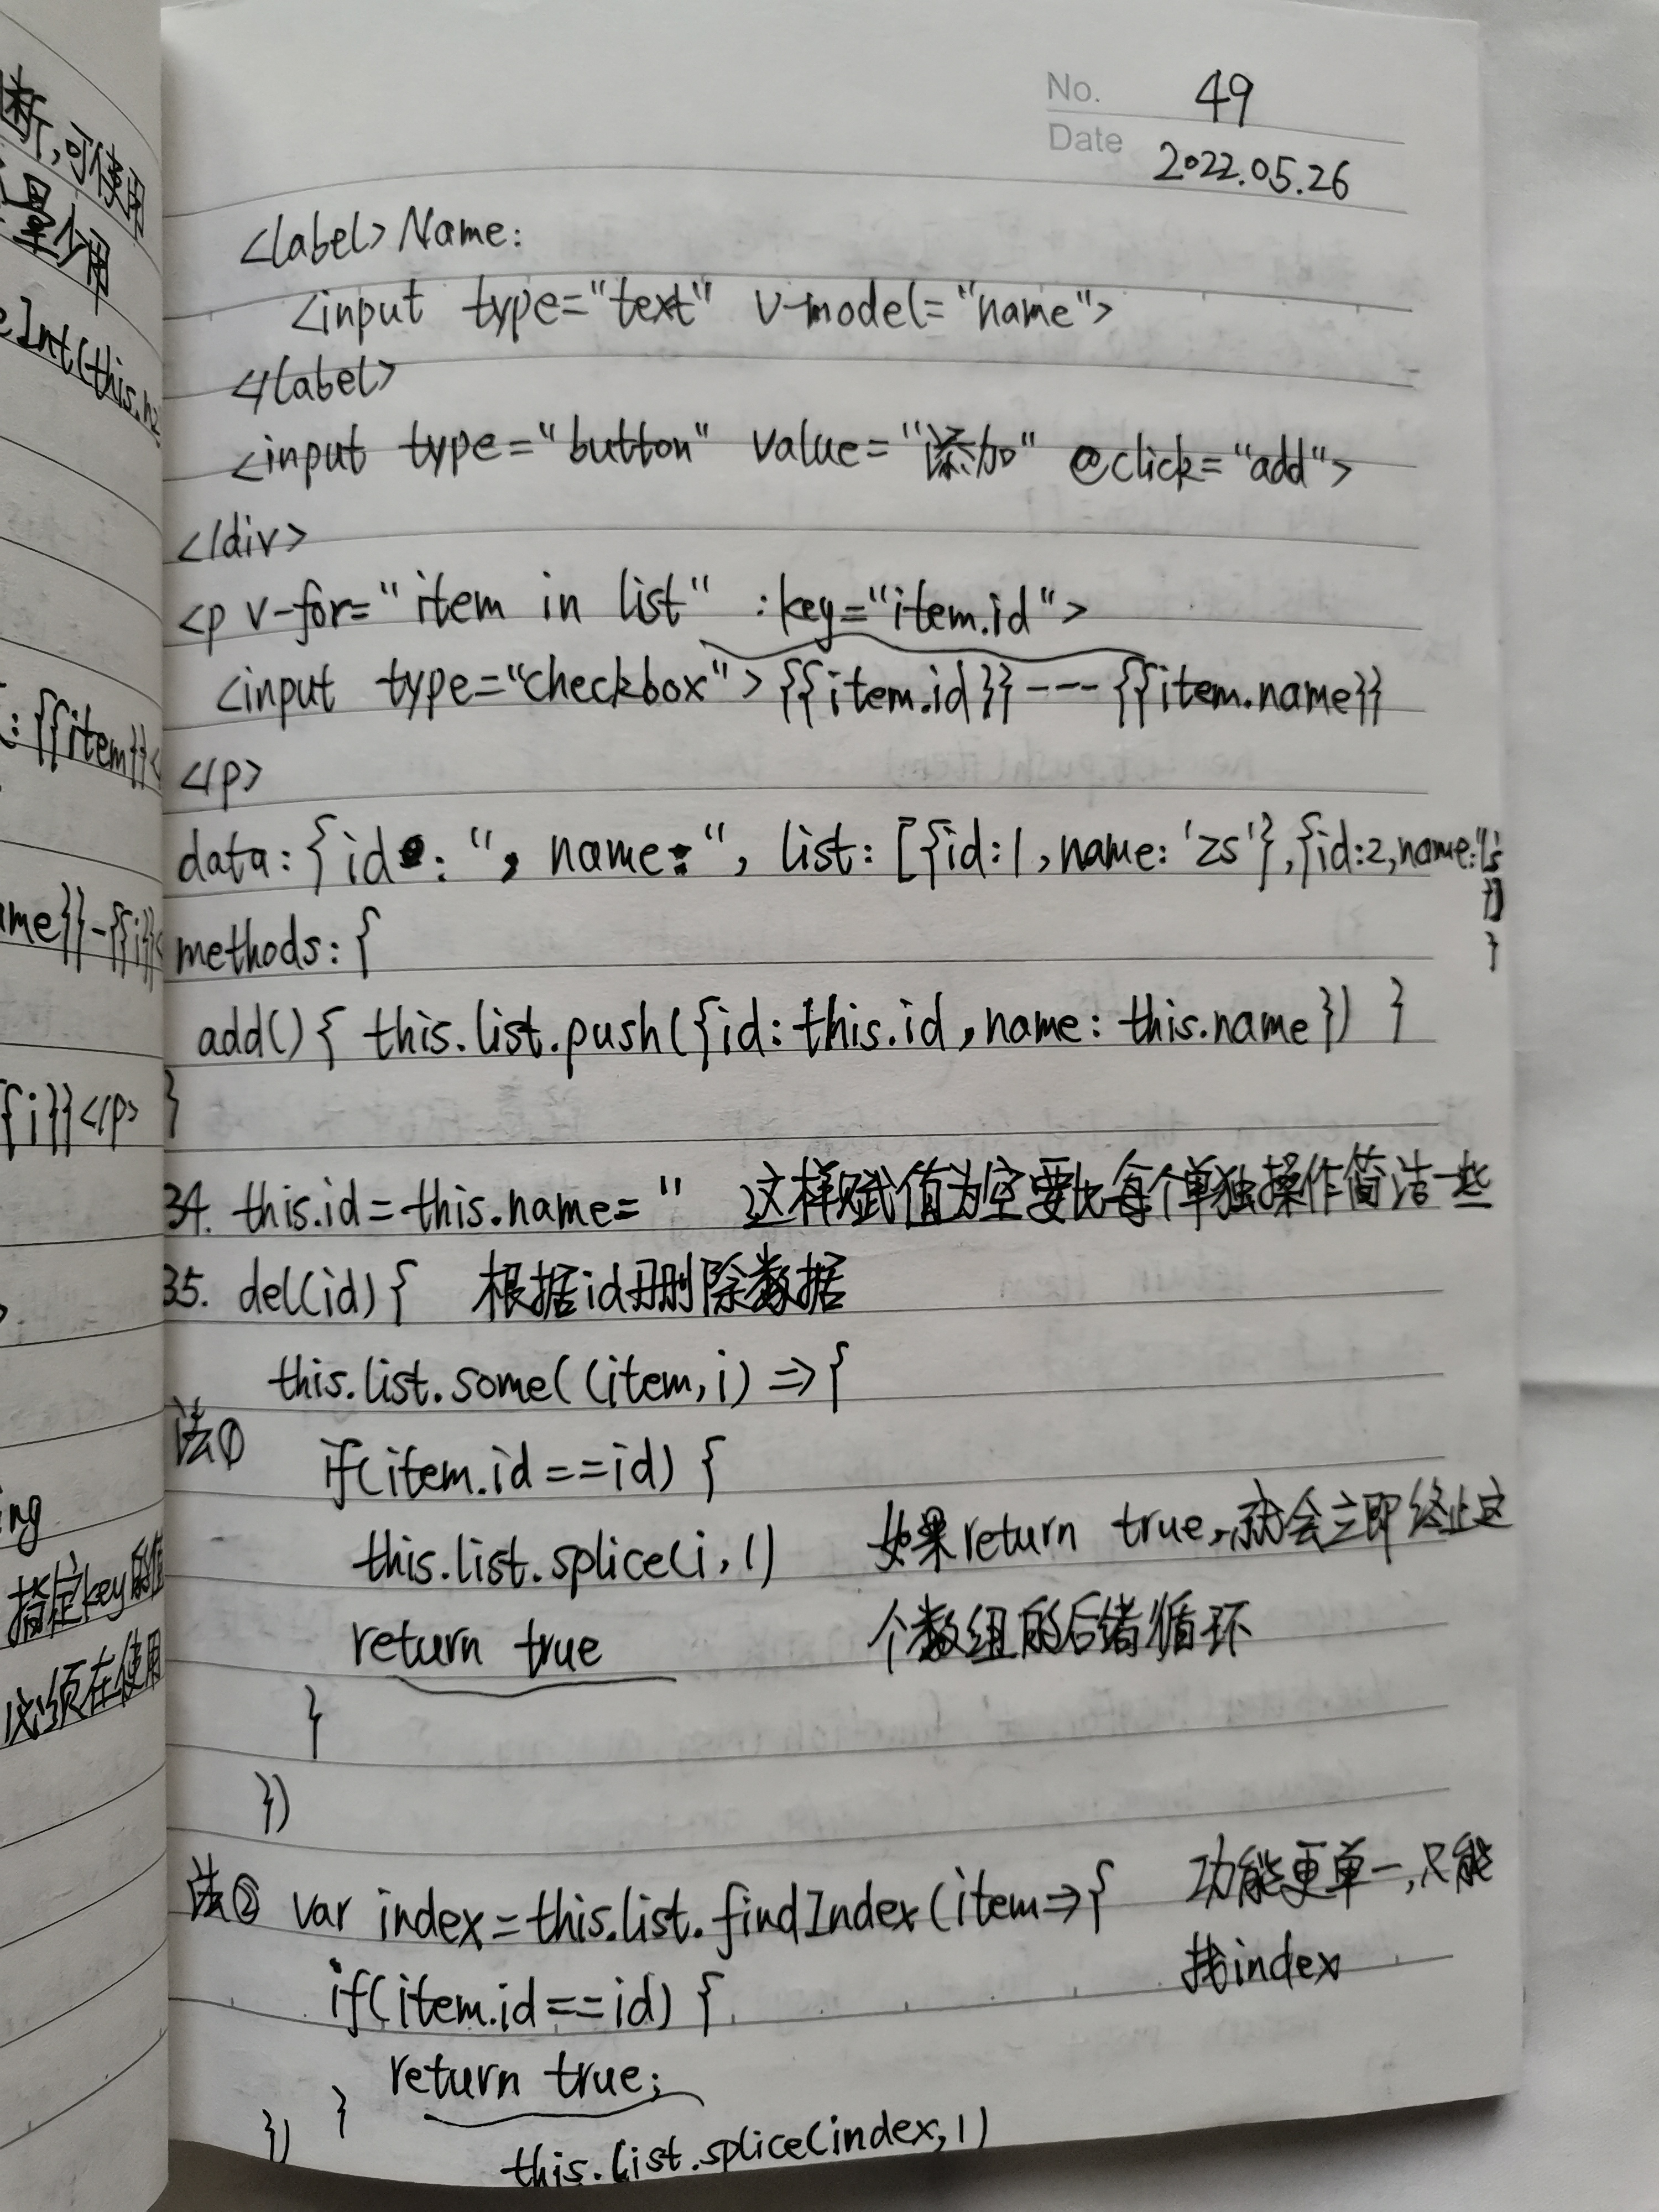 断,可使用
量个用
eInt(this.n
: {{item}}<
ame}}-{{i}}<
{i}}</p>
ing
指定key的值
必须在使用
No. 49
Date 2022.05.26
<label>Name:
<input type="text" v-model="name">
</label>
<input type="button" value="添加" @click="add">
</div>
<p v-for="item in list" :key="item.id">
<input type="checkbox">{{item.id}}---{{item.name}}
</p>
data:{id:'', name:'', list:[{id:1,name:'zs'},{id:2,name:'ls'
}]
}
methods:{
add(){ this.list.push({id:this.id,name:this.name}) }
}
34. this.id=this.name='' 这样赋值为空要比每个单独操作简洁一些
35. del(id){ 根据id删除数据
this.list.some((item,i)=>{
法① if(item.id==id) {
this.list.splice(i,1) 如果return true,就会立即终止这
return true 个数组的后续循环
}
})
法② var index=this.list.findIndex(item=>{ 功能更单一,只能
找index
if(item.id==id) {
return true;
}
}) this.list.splice(index,1)